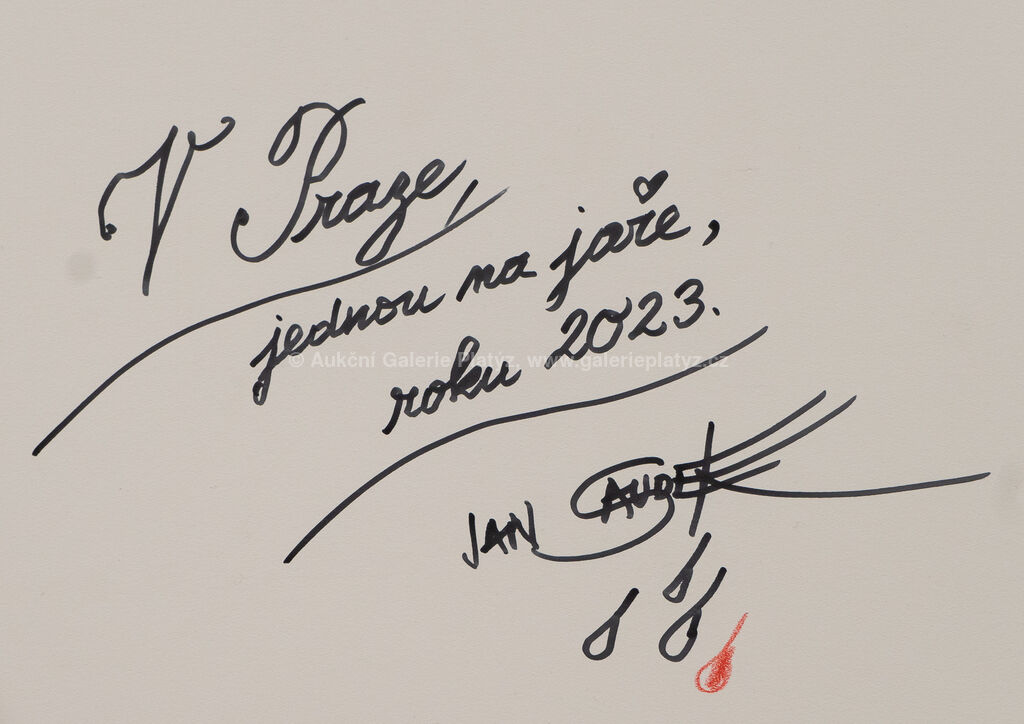 V Praze,
jednou na jaře,
roku 2023.
© Aukční Galerie Platýz, www.galerieplatyz.cz
JAN SAUDEK